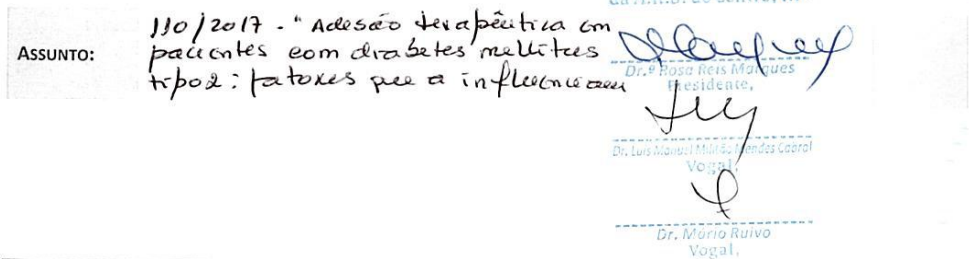 ASSUNTO:
110/2017 - "Adesão terapêutica em
pacientes com diabetes mellitus
tipo 2: fatores que a influenciam
Dr.ª Rosa Reis Marques
Presidente,
Dr. Luis Manuel Militão Mendes Cabral
Vogal,
Dr. Mário Ruivo
Vogal,